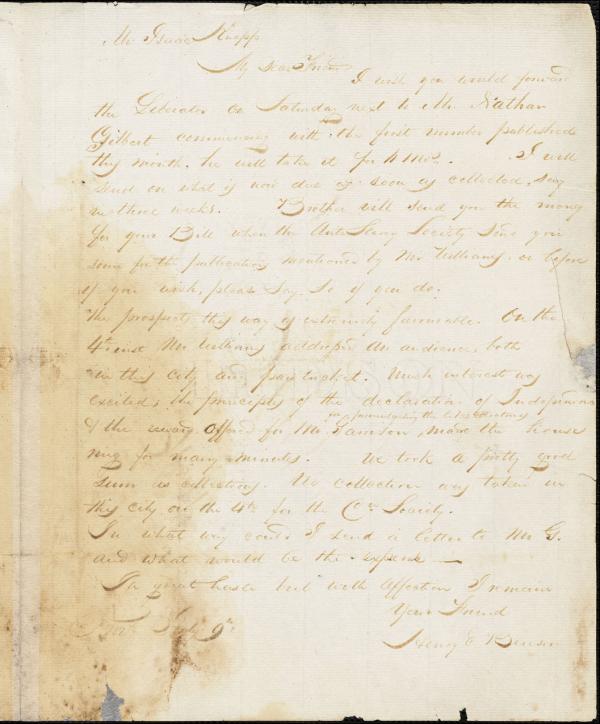 Mr Isaac Knapp
My dear Friend
I wish you would forward
the Liberator on Saturday next to Mr. Nathan
Gilbert commencing with the first number published
this month. he will take it for 4 mos. I will
send on what is now due as soon as collected, say
in three weeks. Brother will send you the money
for your Bill when the Anti Slavy Society send you
some for the publications mentioned by Mr Williams. or before
if you wish, please say so if you do.
The prospects this way is extremely favourable. On the
4th inst Mr Williams addressed an audience, both
in this city and pawtucket. Much interest was
excited; the principles of the declaration of Independence
for promulgating the
& the reward offered for Mr Garrison, made the house
ring for many minutes. We took a pretty good
sum as collections. No collection was taken in
this city on the 4th for the Con Society.
In what way could I send a letter to Mr G.
and what would be the expense —
In great haste but with affection I remain
Your Friend
Henry E Benson
9th